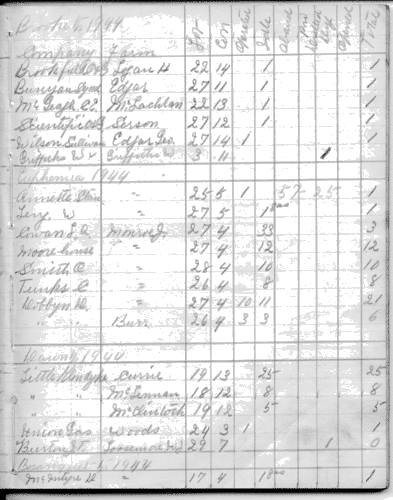 Brooke 1944
Company Farm Lot Con Operated Idle Aband Total
Brookfield Logan H 22 14 1 1
Bunyan Synd Edgar 27 11 1 1
McLachlan 22 13 1 1
Scientific Serson 27 12 1 1
Wilson Sullivan Edgar Geo. 27 14 1 1
Griffiths W Griffiths W 3 11 1
Euphemia 1944
Annett Stan 25 5 1 57 25 1
W " 27 5 1 gas 1
Cowan L.A. Monroe J. 27 4 33 3
Moorehouse " 27 4 12 12
Smith C " 28 4 10 10
Tunks C " 26 4 8 8
Dobbyn D. " 27 4 10 11 21
" " Burr 26 4 3 3 6
1944
Little Currie 19 13 25 25
" " McLennan 18 12 8 8
" " McClintock 19 12 5 5
Union Gas Woods 24 3 1 1
Burton 29 7 1 0
1944
McIntyre D " 17 4 1 gas 1